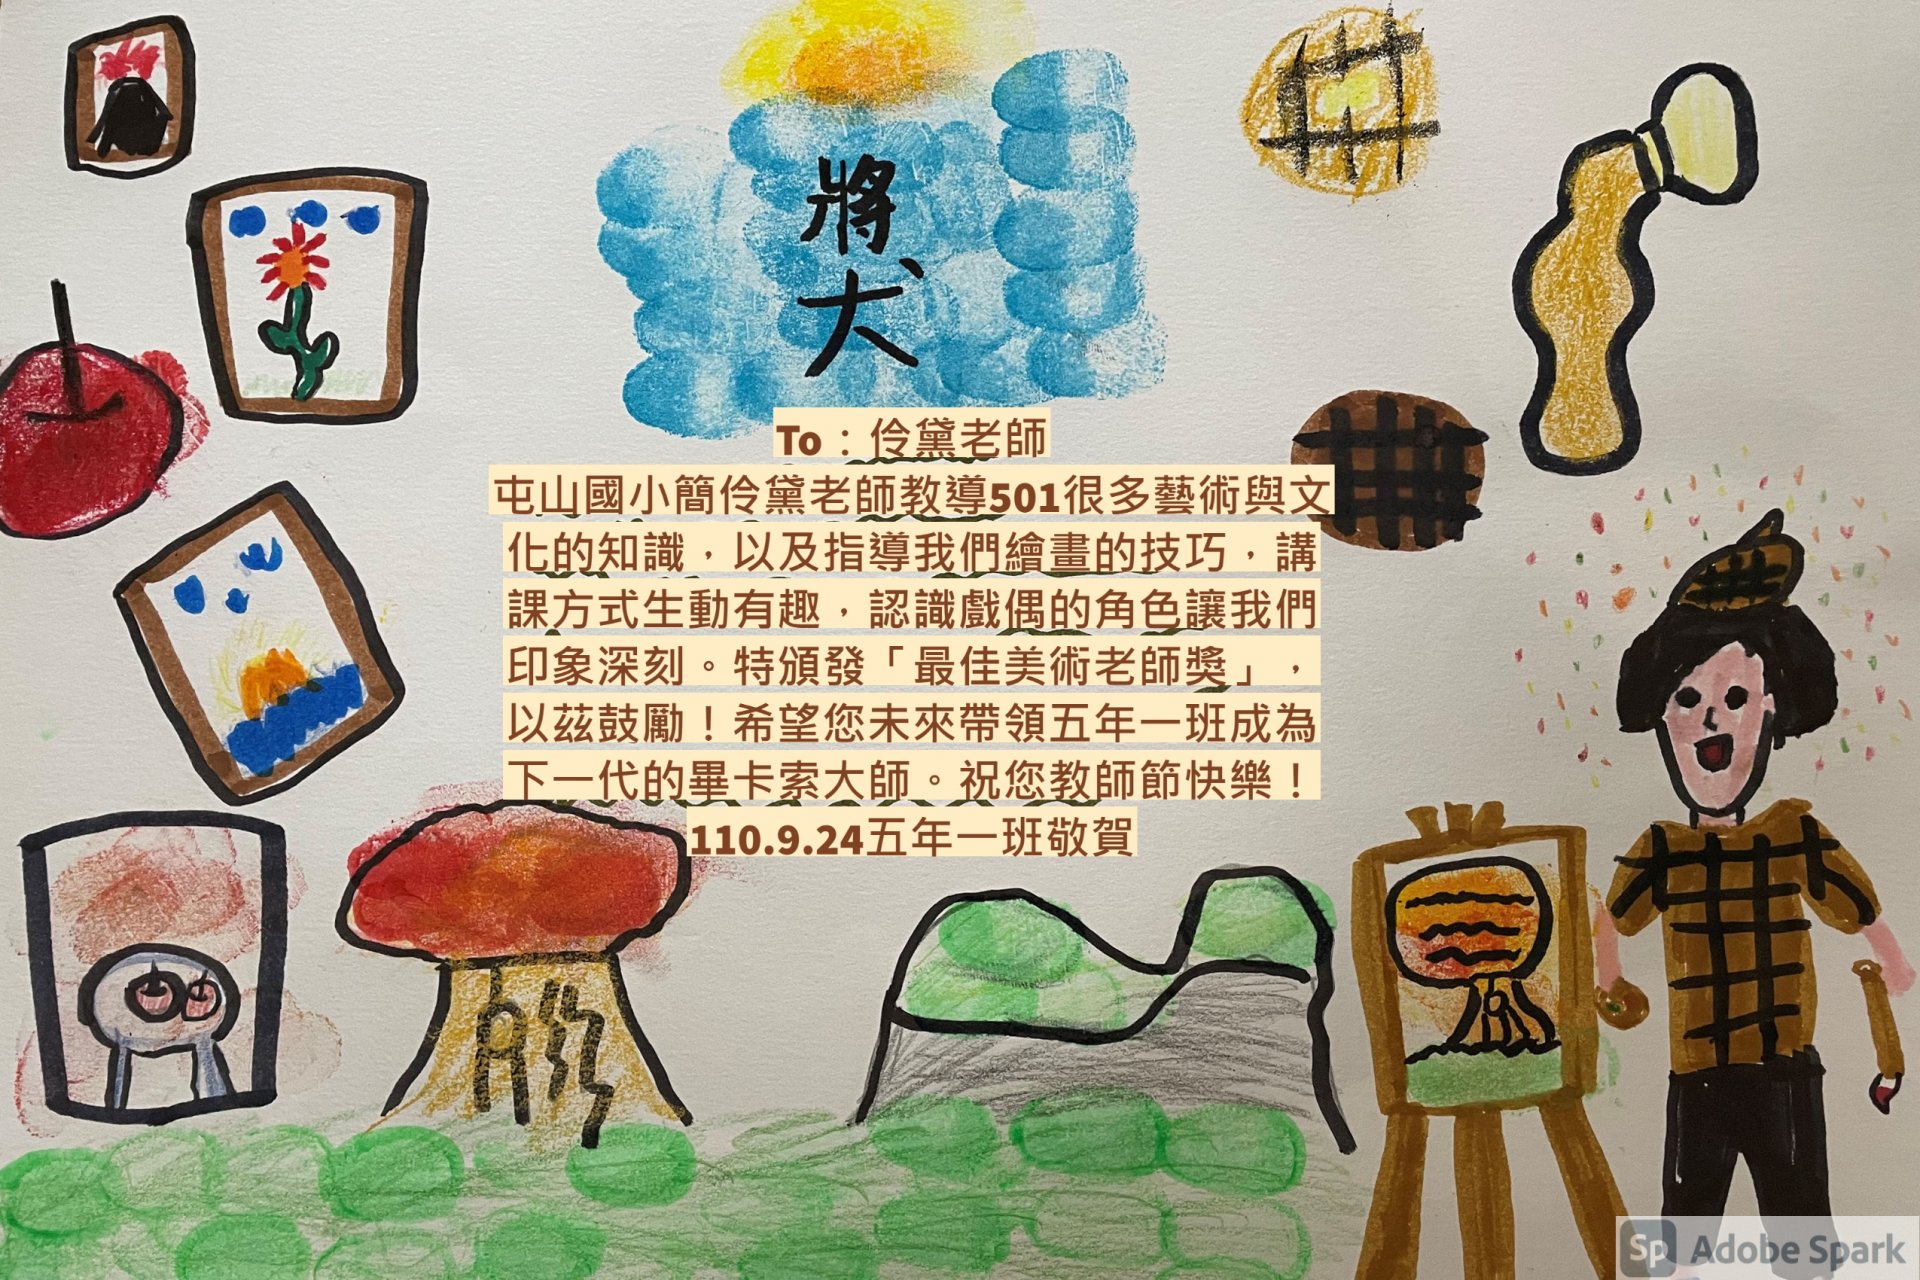 將
犬
To：伶黛老師
屯山國小簡伶黛老師教導501很多藝術與文
化的知識，以及指導我們繪畫的技巧，講
課方式生動有趣，認識戲偶的角色讓我們
印象深刻。特頒發「最佳美術老師獎」，
以茲鼓勵！希望您未來帶領五年一班成為
下一代的畢卡索大師。祝您教師節快樂！
110.9.24五年一班敬賀
Sp Adobe Spark